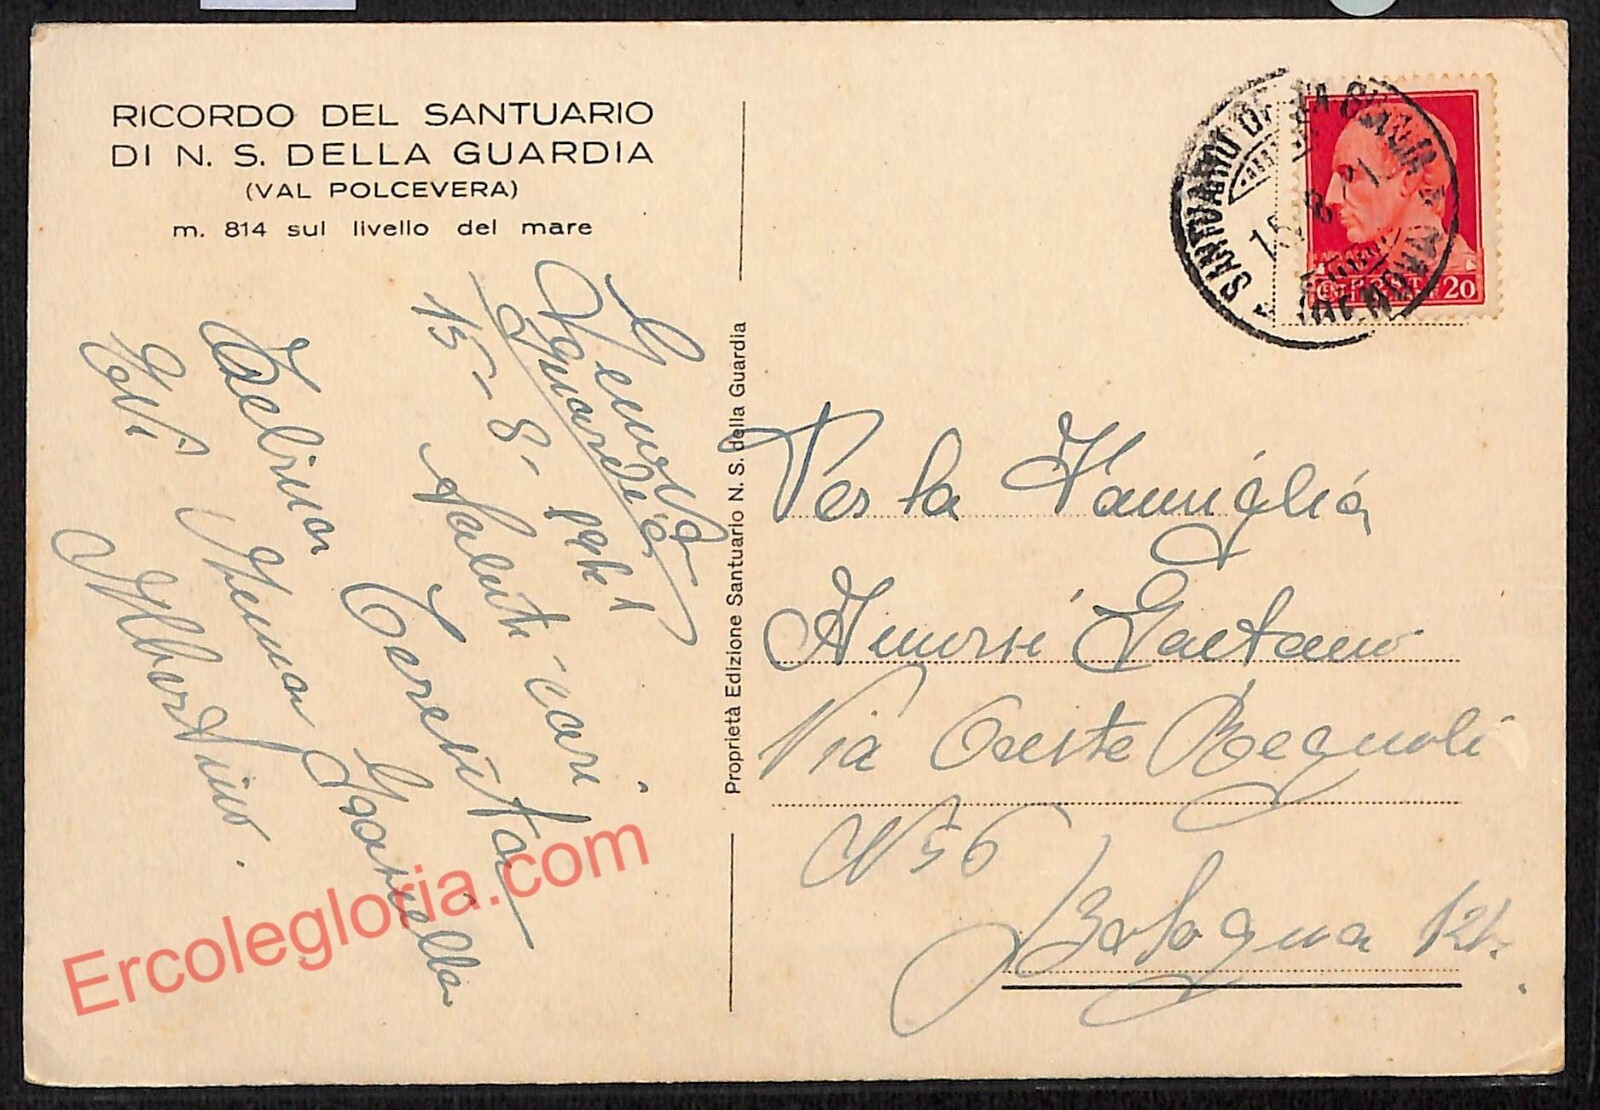 RICORDO DEL SANTUARIO
DI N. S. DELLA GUARDIA
(VAL POLCEVERA)
m. 814 sul livello del mare
Genova
Guardia
15-8-
Saluti cari
Teresita
Mariella
Albertino.
Proprietà Edizione Santuario N. S. della Guardia
SANTUARIO DELLA GUARDIA
GENOVA
15 8
POSTE
CENT 20
Per la Famiglia
Amorsi Gaetano
Via Oreste Regnoli
N 56
Bologna
Ercolegloria.com